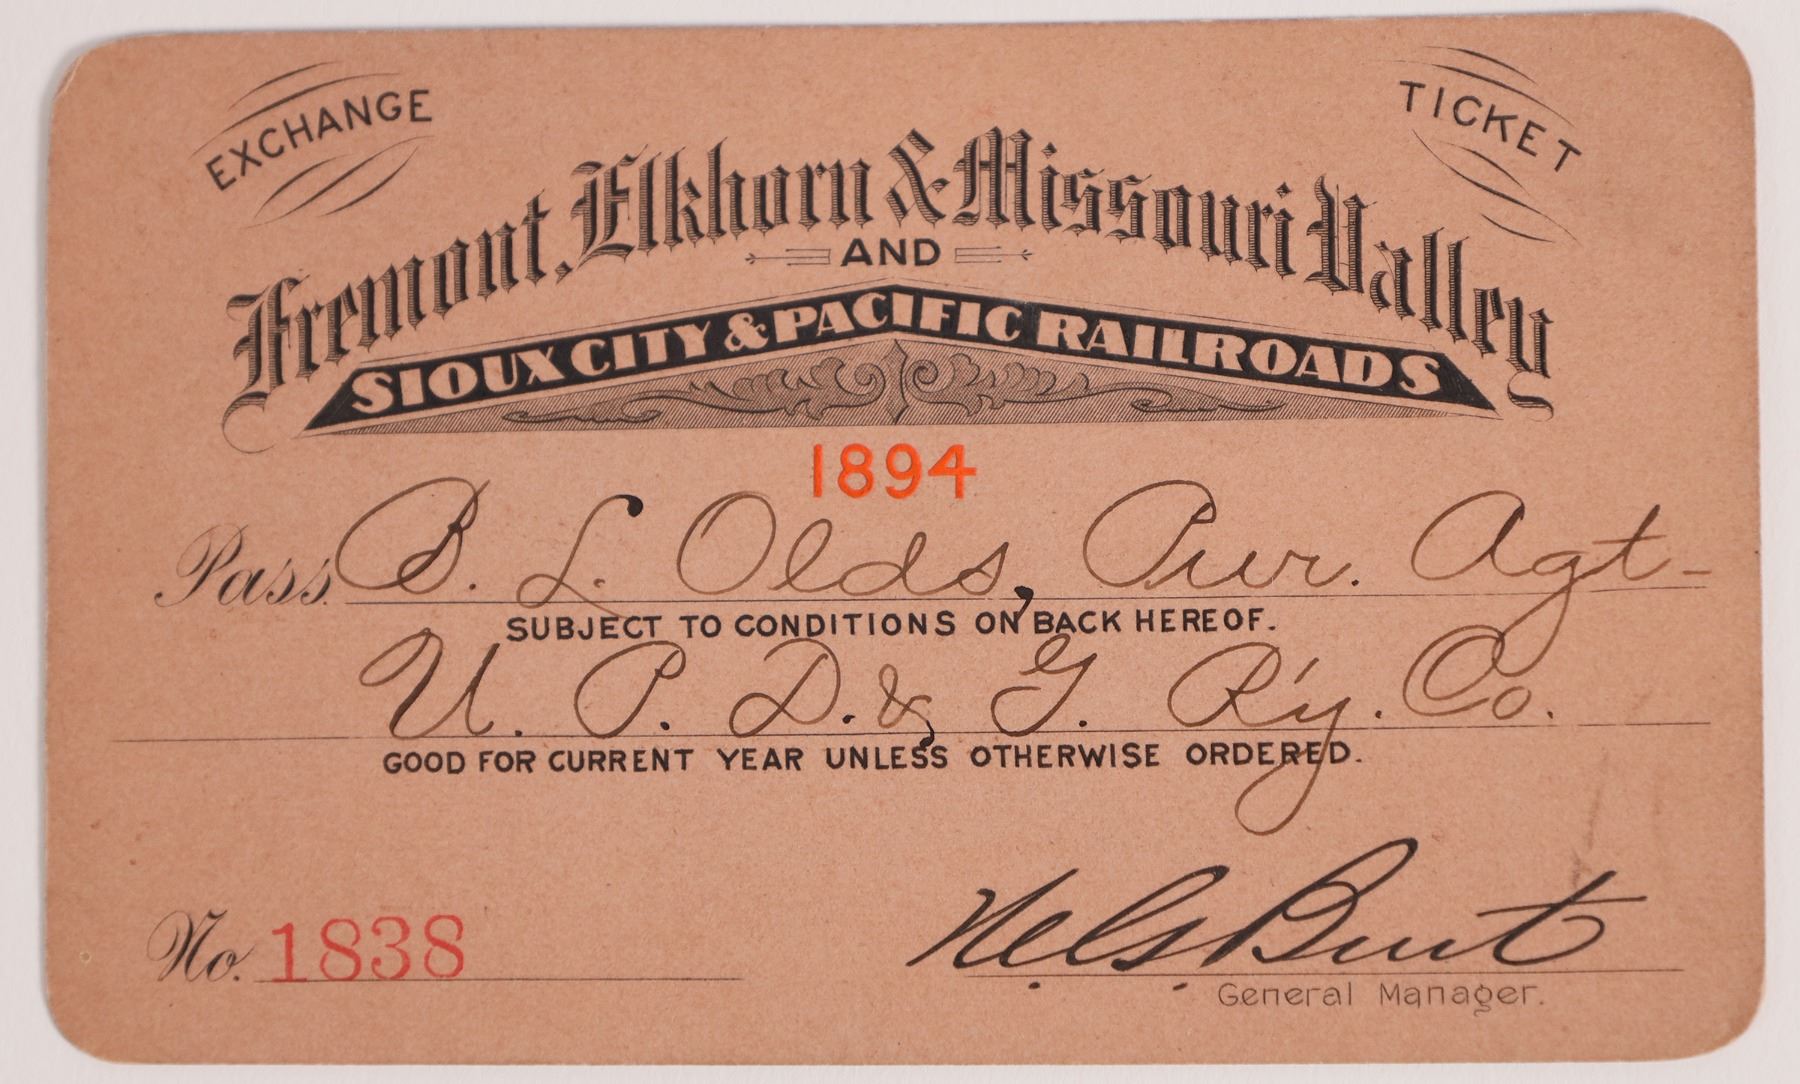 EXCHANGE
TICKET
Fremont, Elkhorn & Missouri Valley
AND
SIOUX CITY & PACIFIC RAILROADS
1894
Pass B. L. Olds, Pur. Agt-
SUBJECT TO CONDITIONS ON BACK HEREOF.
U. P. D. & G. R'y. Co.
GOOD FOR CURRENT YEAR UNLESS OTHERWISE ORDERED.
No. 1838
H. G. Burt
General Manager.